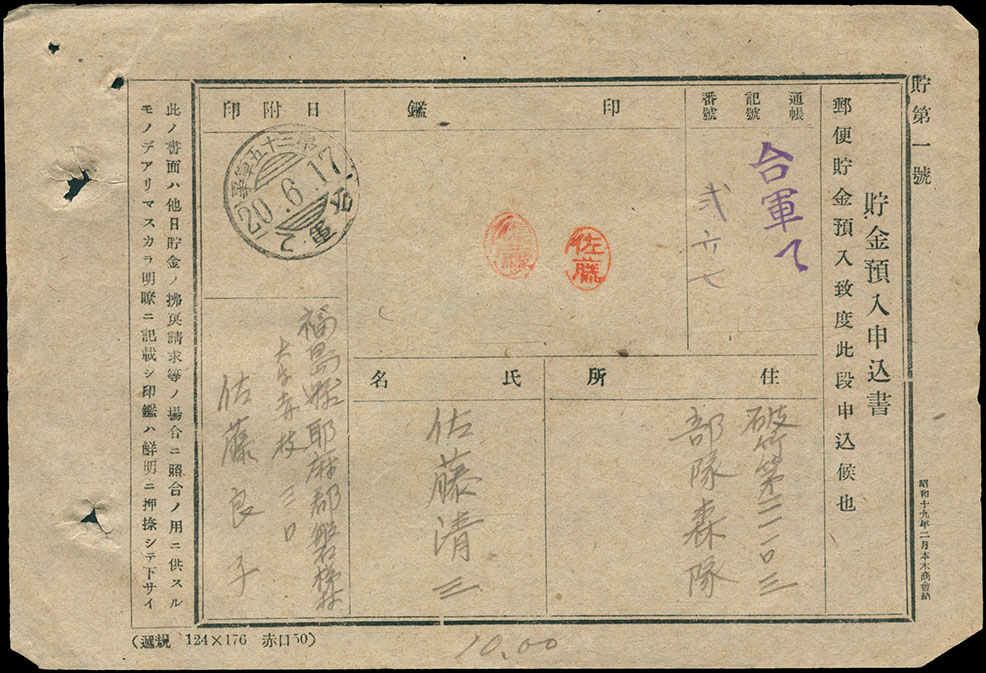 貯第一號
貯金預入申込書
郵便貯金預入致度此段申込候也
昭和十九年二月本木商會納
通帳
記號
番號
台軍て
弐六七
印鑑
佐藤
日附印
20.6.17
台軍
住所
破竹第二一〇三
部隊森隊
氏名
佐藤清三
福島縣耶麻郡磐梯村
佐藤良子
此ノ書面ハ他日貯金ノ拂戻請求等ノ場合ニ照合ノ用ニ供スル
モノデアリマスカラ明瞭ニ記載シ印鑑ハ鮮明ニ押捺シテ下サイ
(遞規 124×176 赤口50)
10.00